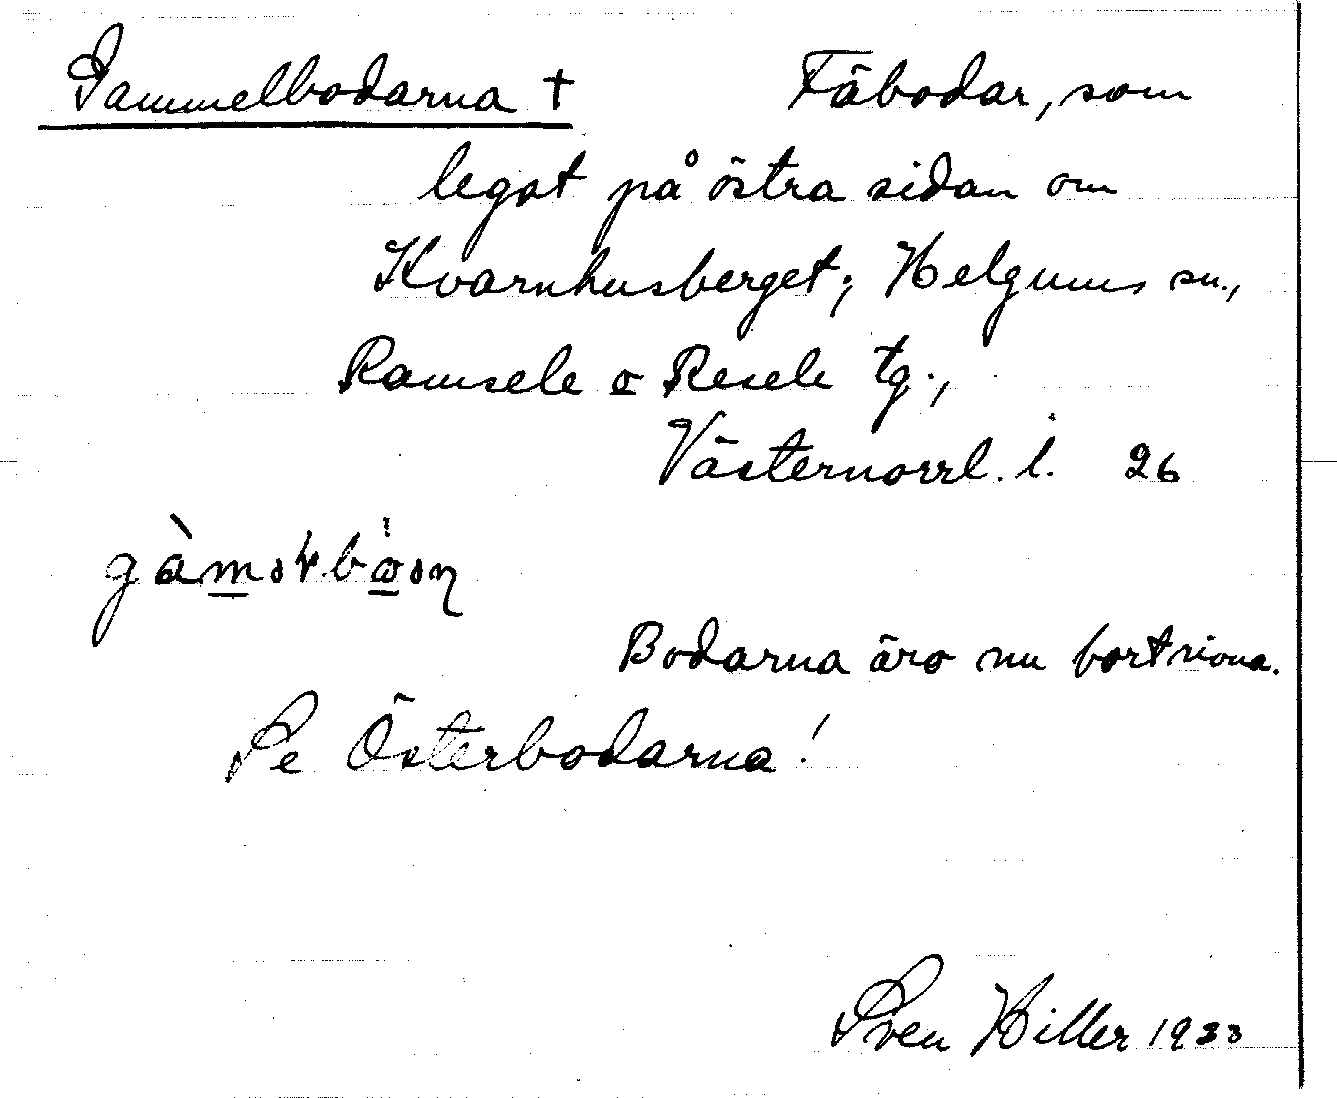 Gammelbodarna † Fäbodar, som
legat på östra sidan om
Kvarnhusberget; Helgums sn.,
Ramsele o Resele tg.,
Västernorrl. l. 26
Bodarna äro nu bortrivna.
Se Österbodarna!
Sven Hiller 1933